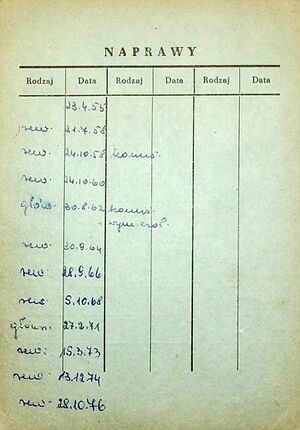 NAPRAWY
Rodzaj Data Rodzaj Data Rodzaj Data
23.4.55
rew. 21.7.58
rew. 24.10.58
rew. 24.10.60
główn. 30.8.62
rew. 30.9.64
rew. 28.9.66
rew 5.10.68
główn. 27.2.71
rew. 15.3.73
rew. 13.12.74
rew. 28.10.76